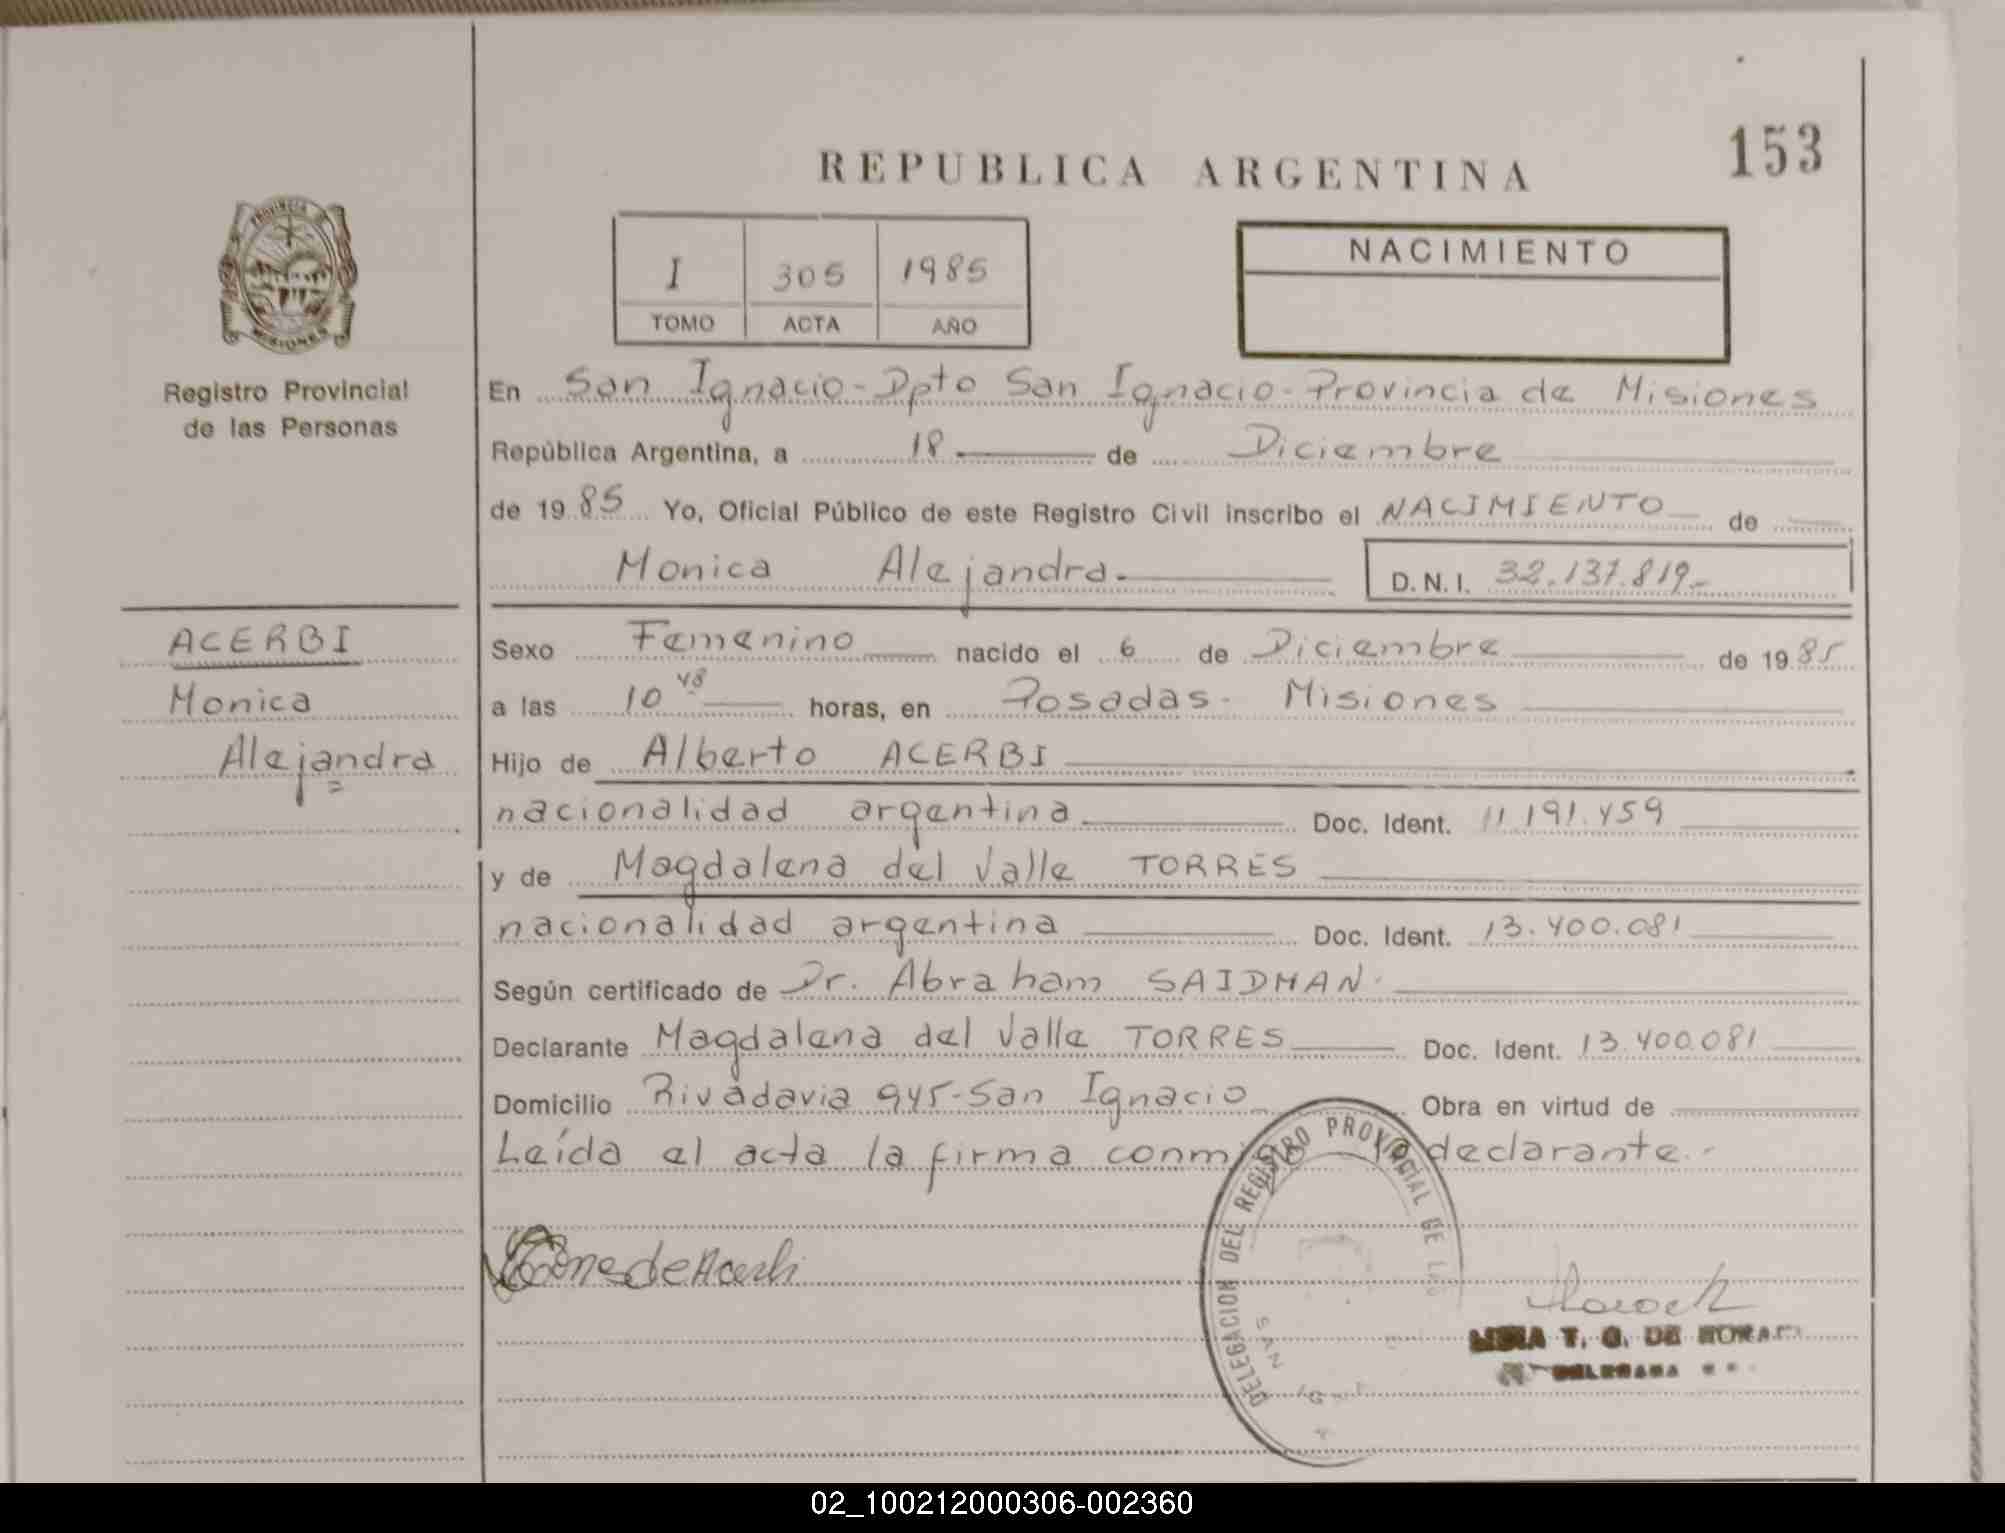 REPUBLICA ARGENTINA
153
PROVINCIA DE
MISIONES
Registro Provincial
de las Personas
I 305 1985
TOMO ACTA AÑO
NACIMIENTO
En San Ignacio - Dpto San Ignacio - Provincia de Misiones
República Argentina, a 18 de Diciembre
de 1985 Yo, Oficial Público de este Registro Civil inscribo el NACIMIENTO de
Monica Alejandra.- D.N.I. 32.137.819.-
ACERBI
Monica
Alejandra
Sexo Femenino nacido el 6 de Diciembre de 1985
a las 10 48 horas, en Posadas - Misiones
Hijo de Alberto ACERBI
nacionalidad argentina Doc. Ident. 11.191.459
y de Magdalena del Valle TORRES
nacionalidad argentina Doc. Ident. 13.400.081
Según certificado de Dr. Abraham SAIDMAN.
Declarante Magdalena del Valle TORRES Doc. Ident. 13.400.081
Domicilio Rivadavia 945 - San Ignacio Obra en virtud de
Leída el acta la firma declarante.-
DELEGACION DEL REGISTRO PROVINCIAL DE LAS
SAN
de Acerbi
T. G. DE
DELEGADA
02_100212000306-002360